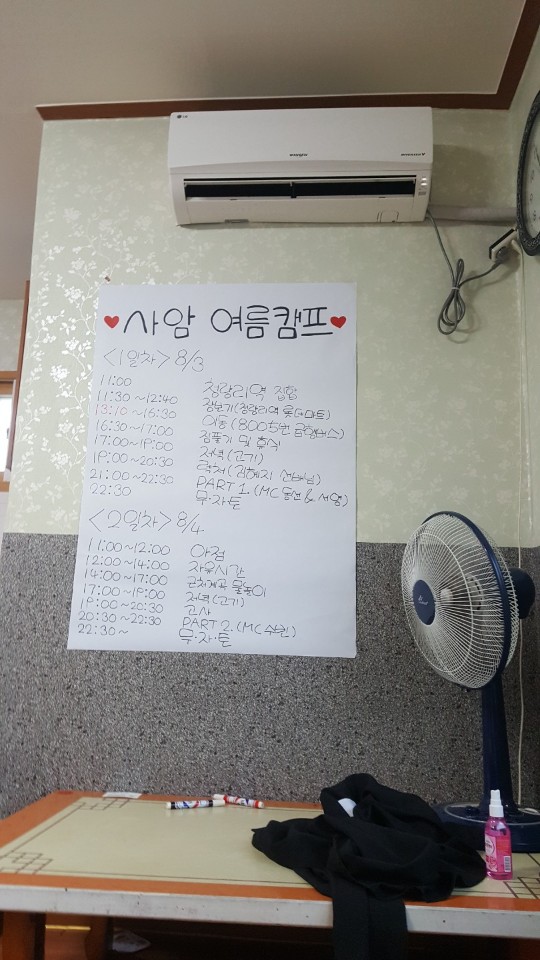 LG
사암 여름캠프
<1일차> 8/3
11:00 청량리역 집합
11:30~12:40 장보기(청량리역 롯데마트)
13:10~16:30 이동(8005번 급행버스)
16:30~17:00 짐풀기 및 휴식
17:00~19:00 저녁(고기)
19:00~20:30 럭처(김혜지 선배님)
21:00~22:30 PART 1.(MC 동선 & 서영)
22:30 무·자·튼
<2일차> 8/4
11:00~12:00 아점
12:00~14:00 자유시간
14:00~17:00 근처계곡 물놀이
17:00~19:00 저녁(고기)
19:00~20:30 고사
20:30~22:30 PART 2.(MC 수빈)
22:30~ 무·자·튼